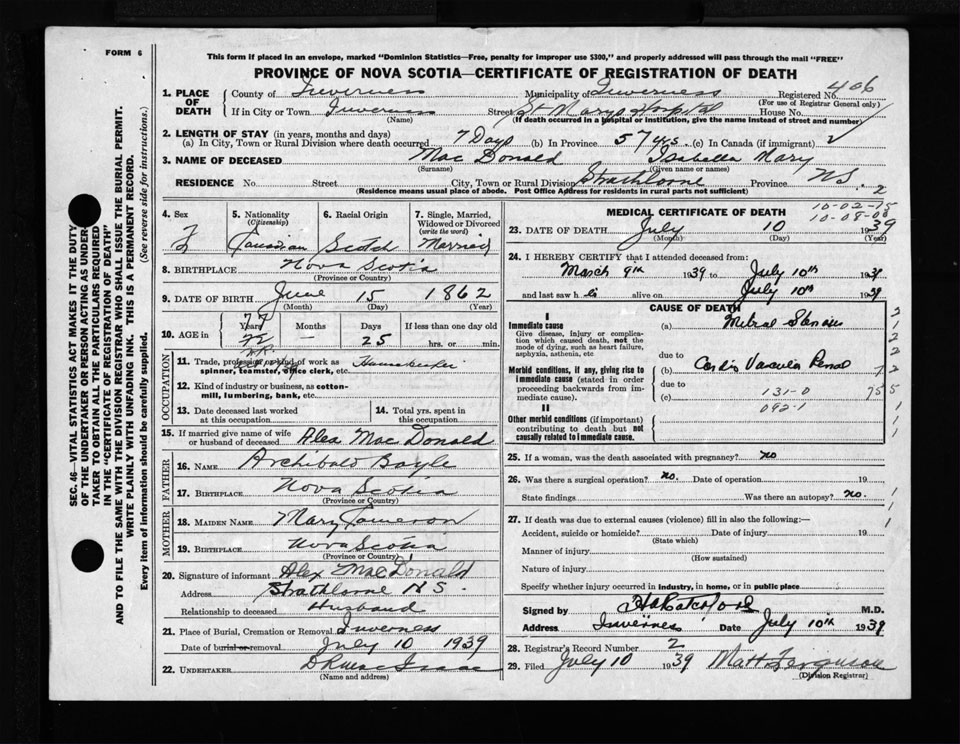 FORM 6
This form if placed in an envelope, marked "Dominion Statistics—Free, penalty for improper use $300," and properly addressed will pass through the mail "FREE"
PROVINCE OF NOVA SCOTIA—CERTIFICATE OF REGISTRATION OF DEATH
1. PLACE OF DEATH County of Inverness Municipality of Inverness Registered No. 406
(For use of Registrar General only)
If in City or Town Inverness Street St Marys Hospital House No.
(Name) (If death occurred in a hospital or institution, give the name instead of street and number)
2. LENGTH OF STAY (in years, months and days)
(a) In City, Town or Rural Division where death occurred 7 Days (b) In Province 57 yrs. (c) In Canada (if immigrant)
3. NAME OF DECEASED Mac Donald Isabella Mary
(Surname) (Given name or names)
RESIDENCE No. Street City, Town or Rural Division Strathlorne Province NS. 2
(Residence means usual place of abode. Post Office Address for residents in rural parts not sufficient)
SEC. 46—VITAL STATISTICS ACT MAKES IT THE DUTY
OF THE UNDERTAKER OR PERSON ACTING AS UNDER-
TAKER TO OBTAIN ALL THE PARTICULARS REQUIRED
IN THE "CERTIFICATE OF REGISTRATION OF DEATH"
AND TO FILE THE SAME WITH THE DIVISION REGISTRAR WHO SHALL ISSUE THE BURIAL PERMIT.
WRITE PLAINLY WITH UNFADING INK. THIS IS A PERMANENT RECORD.
Every item of information should be carefully supplied. (See reverse side for instructions.)
4. Sex 5. Nationality (Citizenship) 6. Racial Origin 7. Single, Married, Widowed or Divorced (write the word)
F Canadian Scotch Married
8. BIRTHPLACE Nova Scotia
(Province or Country)
9. DATE OF BIRTH June 15 1862
(Month) (Day) (Year)
10. AGE in Years Months Days If less than one day old
77 — 25 hrs. or min.
OCCUPATION
11. Trade, profession or kind of work as spinner, teamster, office clerk, etc. Housekeeper
12. Kind of industry or business, as cotton-mill, lumbering, bank, etc.
13. Date deceased last worked at this occupation
14. Total yrs. spent in this occupation
15. If married give name of wife or husband of deceased Alex Mac Donald
FATHER
16. NAME Archibald Boyle
17. BIRTHPLACE Nova Scotia
(Province or Country)
MOTHER
18. MAIDEN NAME Mary Cameron
19. BIRTHPLACE Nova Scotia
(Province or Country)
20. Signature of informant Alex MacDonald
Address Strathlorne N S.
Relationship to deceased Husband
21. Place of Burial, Cremation or Removal Inverness
Date of burial or removal July 10 1939
22. UNDERTAKER D R Mac Isaac
(Name and address)
MEDICAL CERTIFICATE OF DEATH
23. DATE OF DEATH July 10 1939
(Month) (Day) (Year)
24. I HEREBY CERTIFY that I attended deceased from:
March 9th 1939 to July 10th 1939
and last saw h alive on July 10th 1939
CAUSE OF DEATH
I
Immediate cause
Give disease, injury or complication which caused death, not the mode of dying, such as heart failure, asphyxia, asthenia, etc
(a) Mitral Stenosis
due to
Morbid conditions, if any, giving rise to immediate cause (stated in order proceeding backwards from immediate cause).
(b) Cardio Vascular Renal
due to
(c) 131-0
092-1
II
Other morbid conditions (if important) contributing to death but not causally related to immediate cause.
25. If a woman, was the death associated with pregnancy? no
26. Was there a surgical operation? no. Date of operation 19
State findings Was there an autopsy? no.
27. If death was due to external causes (violence) fill in also the following:—
Accident, suicide or homicide? Date of injury 19
(State which)
Manner of injury
(How sustained)
Nature of injury
Specify whether injury occurred in industry, in home, or in public place
Signed by M.D.
Address Inverness Date July 10th 1939
28. Registrar's Record Number 2
29. Filed July 10 1939 Matt Ferguson
(Division Registrar)